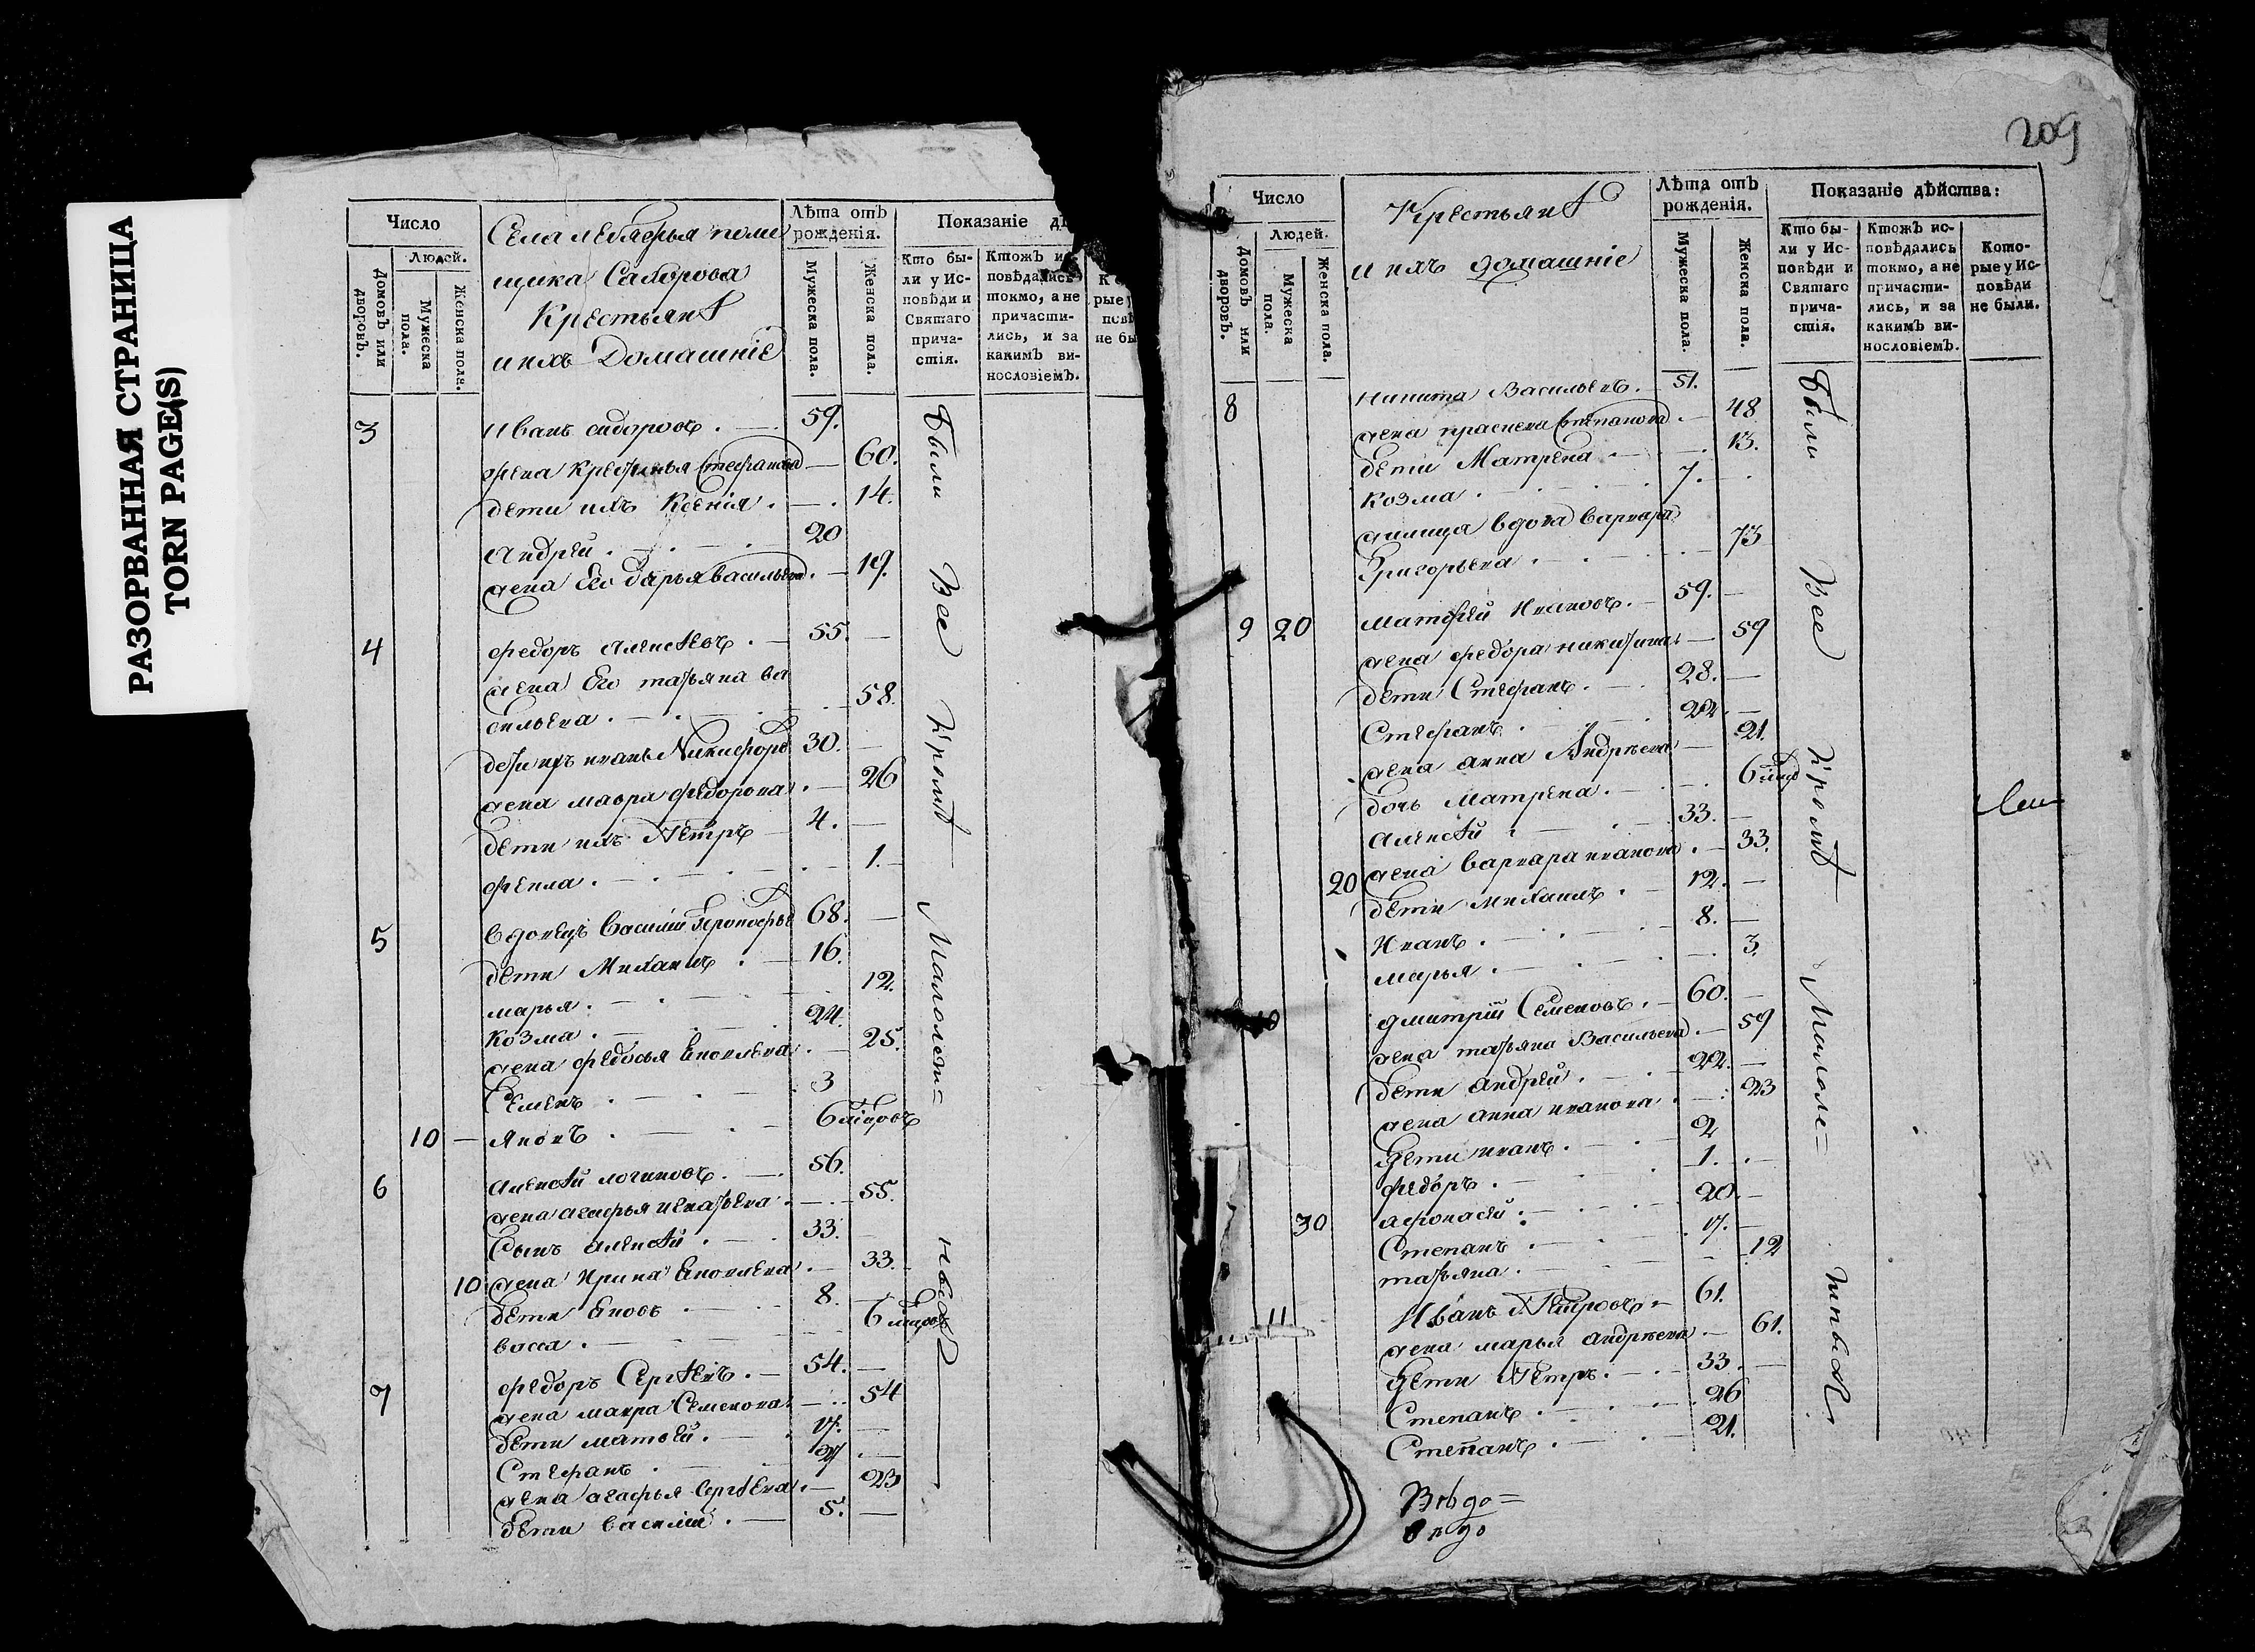 РАЗОРВАННАЯ СТРАНИЦА
TORN PAGE(S)
Число
Людей.
Домовъ или дворовъ.
Мужеска пола.
Женска пола.
Села
щика
Крестьянѣ
и ихъ Домашніе
Лѣта отъ рожденія.
Мужеска пола.
Женска пола.
Показаніе
Кто бы-
ли у Ис-
повѣди и
Святаго
прича-
стія.
Ктожъ ис-
повѣдались
токмо, а не
причасти-
лись, и за
какимъ ви-
нословіемъ.
3 Иванъ сидоровъ 59.
жена Стефанова 60.
дети ихъ Ксенія 14.
Андрей 20
жена Его дарья васильева 19.
4 федоръ Алексѣевъ 55.
жена Его татьяна ва
сильева 58.
дети ихъ иванъ Никифоръ 30.
жена мавра федорова 26
дети ихъ Петръ 4.
фекла 1.
5 вдовецъ Василій 68.
дети Михаилъ 16.
марья 12.
Козма 24.
жена федосья Яковлева 25.
Семенъ 3
10 Яковъ 6
6 Алексѣй логиновъ 56.
жена агафья игнатьева 55.
Сынъ алексѣй 33.
10 жена Ирина Яковлева 33.
дети Яковъ 8.
васса 6
7 федоръ Сергѣевъ 54.
жена мавра Семенова 54
дети матвей 17.
Стефанъ 27
жена агафья сергѣева 23
дети василій 5.
Были Все Кромѣ Малолѣт=
209
Число
Людей.
Домовъ или дворовъ.
Мужеска пола.
Женска пола.
Крестьянѣ
и ихъ домашніе
Лѣта отъ рожденія.
Мужеска пола.
Женска пола.
Показаніе дѣйства:
Кто бы-
ли у Ис-
повѣди и
Святаго
прича-
стія.
Ктожъ ис-
повѣдались
токмо, а не
причасти-
лись, и за
какимъ ви-
нословіемъ.
Кото-
рые у Ис-
повѣди
не были.
8 никита Васильевъ 51.
жена Степанова 48
дети Матрена 13.
Козма 7.
вдова варвара
Григорьева 73
9 20 матфей Ивановъ 59.
жена федора никитина 59
дети Стефанъ 28.
Стефанъ 22
жена анна Андрѣева 21.
дочь Матрена 6
Алексѣй 33.
20 жена варвара иванова 33.
дети михаилъ 12.
Иванъ 8.
марья 3.
10 дмитрій Семеновъ 60.
жена татьяна Васильева 59
дети андрей 22.
жена анна иванова 23
дети иванъ 2
федоръ 1.
30 афонасей 20
Степанъ 17.
татьяна 12
11 Иванъ Петровъ 61.
жена марья андрѣева 61.
дети Петръ 33.
Степанъ 26
Степанъ 21.
Были Все Кромѣ Малолѣ=